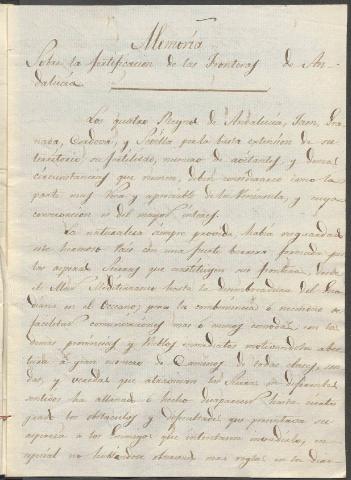 Memoria
Sobre la fortificacion de las Fronteras de An-
dalucia
Los quatro Reynos de Andalucia, Jaen, Gra-
nada, Cordova, y Sevilla por la basta extension de su
territorio, su fertilidad, numero de avitantes, y demas
circunstancias que reunen, deben considerarse como la
parte mas rica y apreciable de la Peninsula, y cuya
conservacion es del mayor interes.
La naturaleza siempre provida había resguardado
este hermoso Pais con una fuerte barrera formada por
las asperas Sierras que constituyen su frontera, desde
el Mar Mediterraneo hasta la desembocadura del Gua-
diana en el Occeano; pero la combeniencia ó necesario de
facilitar comunicaciones mas ó menos comodas con las
demas provincias, y Pueblos inmediatos motivandola aber-
tura de gran numero de Caminos de todas clases, sen-
das, y veredas que atraviesan las Sierras en diferentes
sentidos ha allanado ó hecho desaparecer hasta cierto
grado los obstaculos y dificultades que presentava su
aspereza a los Enemigos que intentaran invadirla, en
especial no hallandose obras mas reglas en los